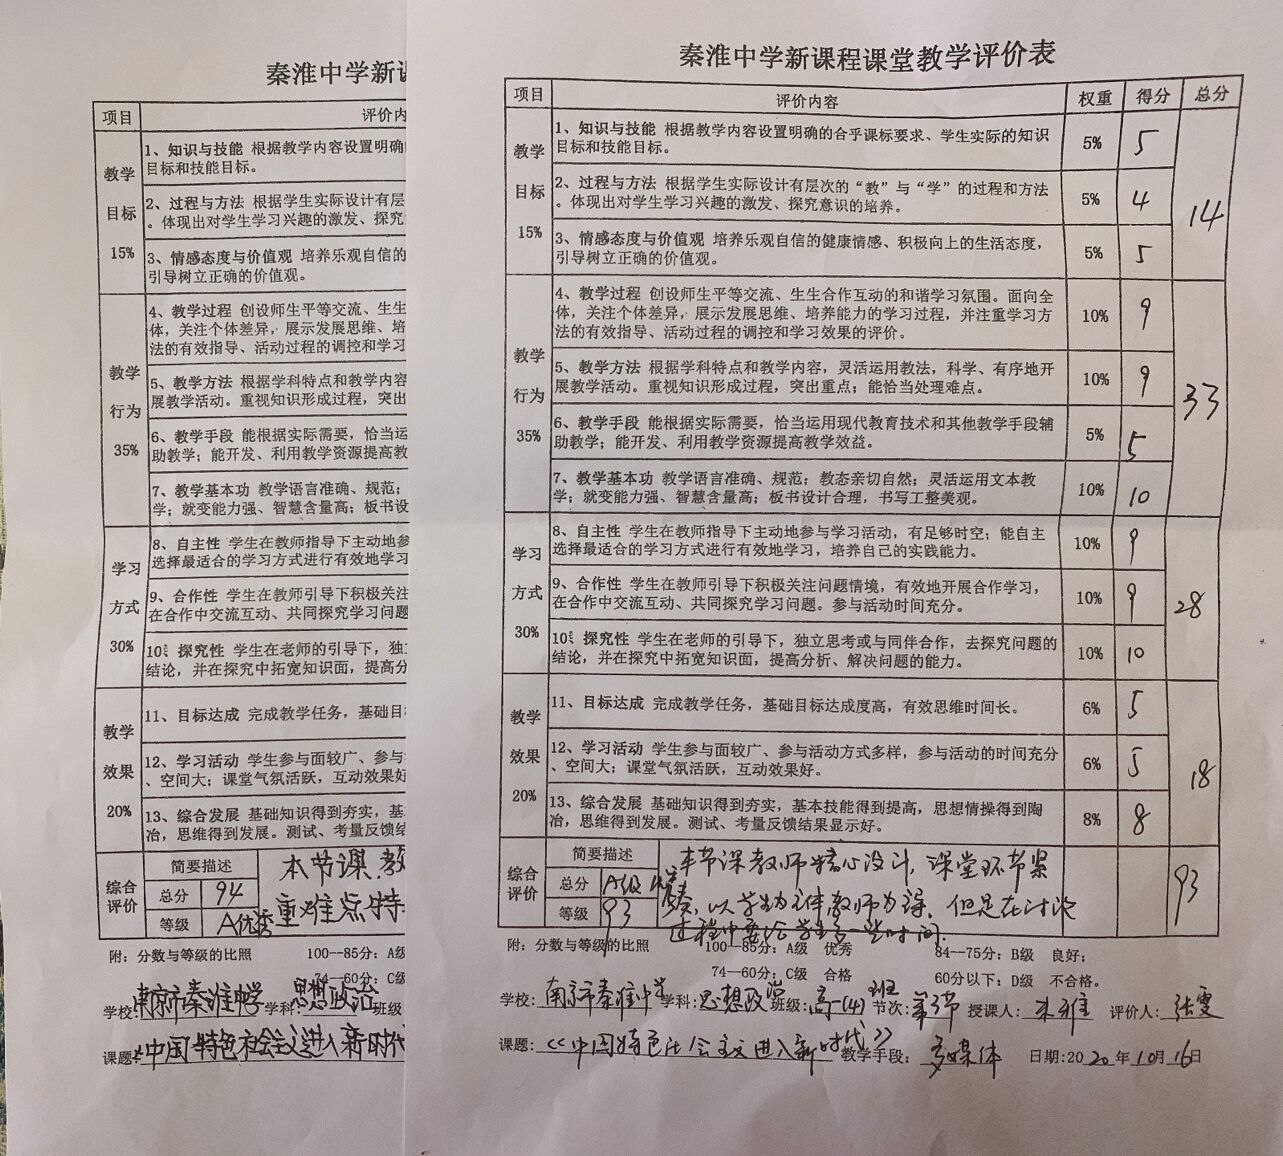 秦淮中学新
项目
评价内
教学
目标
15%
1、知识与技能 根据教学内容设置明确
目标和技能目标。
2、过程与方法 根据学生实际设计有层
。体现出对学生学习兴趣的激发、探究
3、情感态度与价值观 培养乐观自信的
引导树立正确的价值观。
教学
行为
35%
4、教学过程 创设师生平等交流、生生
体，关注个体差异，展示发展思维、培
法的有效指导、活动过程的调控和学习
5、教学方法 根据学科特点和教学内容
展教学活动。重视知识形成过程，突出
6、教学手段 能根据实际需要，恰当运
助教学；能开发、利用教学资源提高教
7、教学基本功 教学语言准确、规范；
学；就变能力强、智慧含量高；板书设
学习
方式
30%
8、自主性 学生在教师指导下主动地参
选择最适合的学习方式进行有效地学习
9、合作性 学生在教师引导下积极关注
在合作中交流互动、共同探究学习问题
10、探究性 学生在老师的引导下，独
结论，并在探究中拓宽知识面，提高分
教学
效果
20%
11、目标达成 完成教学任务，基础目
12、学习活动 学生参与面较广、参与
、空间大；课堂气氛活跃，互动效果好
13、综合发展 基础知识得到夯实，基
冶，思维得到发展。测试、考量反馈结
综合
评价
简要描述
总分 94
等级 A优秀
本节课教
重难点特
附：分数与等级的比照 100--85分：A级
74--60分：C级
学校：南京市秦淮中学 学科：思想政治 班级
课题：《中国特色社会主义进入新时代
秦淮中学新课程课堂教学评价表
项目 评价内容 权重 得分 总分
教学
目标
15%
1、知识与技能 根据教学内容设置明确的合乎课标要求、学生实际的知识
目标和技能目标。
5% 5
2、过程与方法 根据学生实际设计有层次的“教”与“学”的过程和方法
。体现出对学生学习兴趣的激发、探究意识的培养。
5% 4
3、情感态度与价值观 培养乐观自信的健康情感、积极向上的生活态度，
引导树立正确的价值观。
5% 5
14
教学
行为
35%
4、教学过程 创设师生平等交流、生生合作互动的和谐学习氛围。面向全
体，关注个体差异，展示发展思维、培养能力的学习过程，并注重学习方
法的有效指导、活动过程的调控和学习效果的评价。
10% 9
5、教学方法 根据学科特点和教学内容，灵活运用教法，科学、有序地开
展教学活动。重视知识形成过程，突出重点；能恰当处理难点。
10% 9
6、教学手段 能根据实际需要，恰当运用现代教育技术和其他教学手段辅
助教学；能开发、利用教学资源提高教学效益。
5% 5
7、教学基本功 教学语言准确、规范；教态亲切自然；灵活运用文本教
学；就变能力强、智慧含量高；板书设计合理，书写工整美观。
10% 10
33
学习
方式
30%
8、自主性 学生在教师指导下主动地参与学习活动，有足够时空；能自主
选择最适合的学习方式进行有效地学习，培养自己的实践能力。
10% 9
9、合作性 学生在教师引导下积极关注问题情境，有效地开展合作学习，
在合作中交流互动、共同探究学习问题。参与活动时间充分。
10% 9
10、探究性 学生在老师的引导下，独立思考或与同伴合作，去探究问题的
结论，并在探究中拓宽知识面，提高分析、解决问题的能力。
10% 10
28
教学
效果
20%
11、目标达成 完成教学任务，基础目标达成度高，有效思维时间长。
6% 5
12、学习活动 学生参与面较广、参与活动方式多样，参与活动的时间充分
、空间大；课堂气氛活跃，互动效果好。
6% 5
13、综合发展 基础知识得到夯实，基本技能得到提高，思想情操得到陶
冶，思维得到发展。测试、考量反馈结果显示好。
8% 8
18
综合
评价
简要描述
总分 A级
等级 93
本节课教师精心设计，课堂环节紧
凑，以学生为主体教师为主导，但是在讨论
过程中要给学生多一些时间。
93
附：分数与等级的比照 100--85分：A级 优秀 84--75分：B级 良好；
74--60分：C级 合格 60分以下：D级 不合格。
学校：南京市秦淮中学 学科：思想政治 班级：高一(4)班 节次：第3节 授课人：朱雅 评价人：张雯
课题：《中国特色社会主义进入新时代》 教学手段：多媒体 日期：2020年10月16日